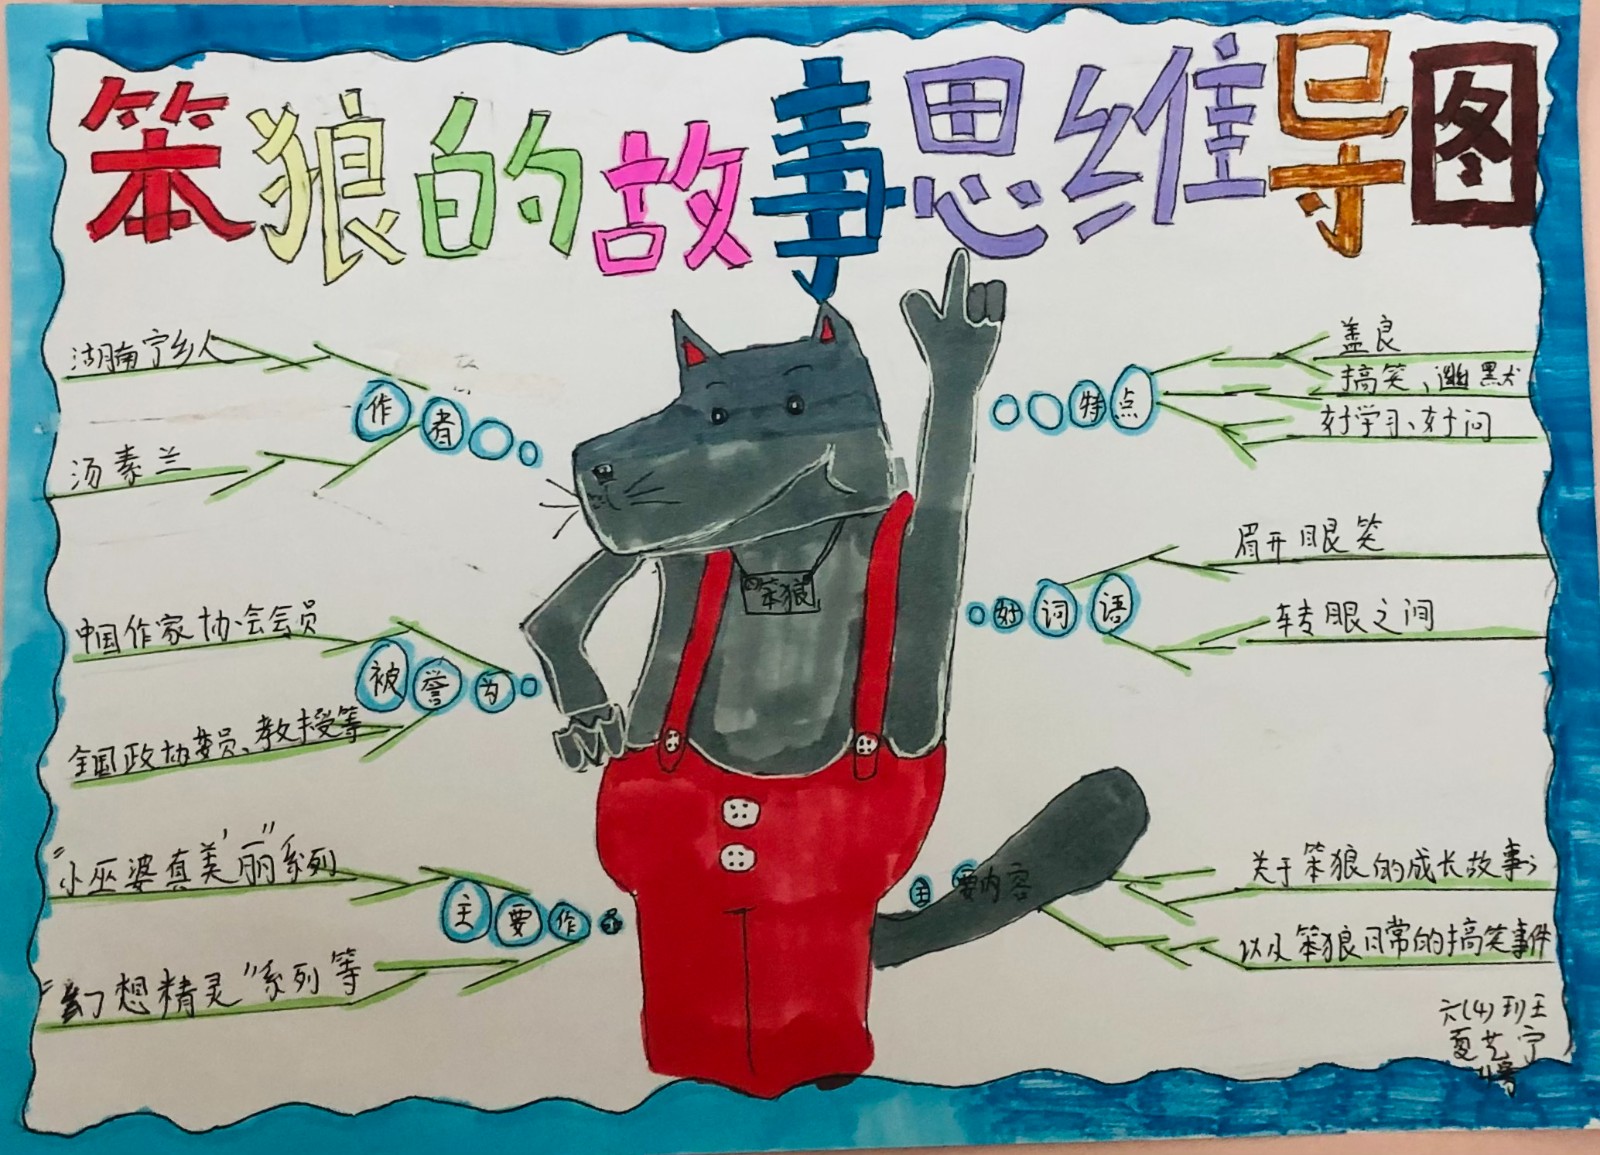 笨狼的故事思维导图
湖南宁乡人
作者
汤素兰
中国作家协会会员
被誉为
全国政协委员、教授等
"小巫婆真美丽"系列
主要作品
"幻想精灵"系列等
笨狼
特点
善良
搞笑、幽默
好学习、好问
好词语
眉开眼笑
转眼之间
主要内容
关于笨狼的成长故事;
以及笨狼日常的搞笑事件
六(4)班王
夏艺宁